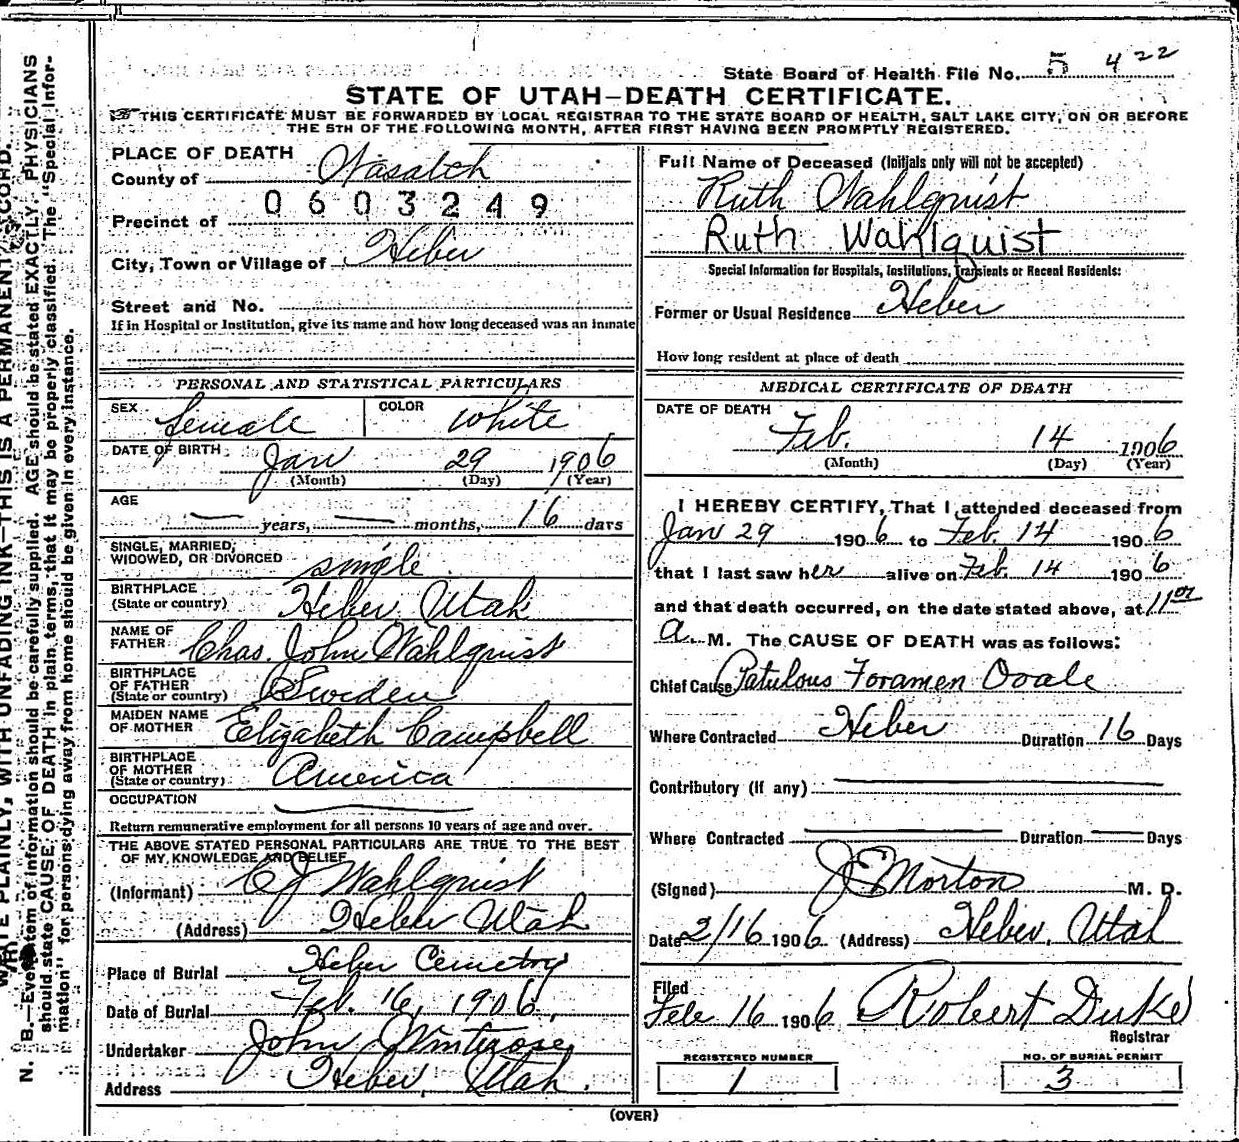 State Board of Health File No. 5 422
STATE OF UTAH-DEATH CERTIFICATE.
THIS CERTIFICATE MUST BE FORWARDED BY LOCAL REGISTRAR TO THE STATE BOARD OF HEALTH, SALT LAKE CITY, ON OR BEFORE
THE 5TH OF THE FOLLOWING MONTH, AFTER FIRST HAVING BEEN PROMPTLY REGISTERED.
PLACE OF DEATH
County of Wasatch
0603249
Precinct of
City, Town or Village of Heber
Street and No.
If in Hospital or Institution, give its name and how long deceased was an inmate
PERSONAL AND STATISTICAL PARTICULARS
SEX Female COLOR White
DATE OF BIRTH Jan 29 1906
(Month) (Day) (Year)
AGE
— years, — months, 16 days
SINGLE, MARRIED,
WIDOWED, OR DIVORCED single
BIRTHPLACE
(State or country) Heber Utah
NAME OF
FATHER Chas. John Wahlquist
BIRTHPLACE
OF FATHER
(State or country) Sweden
MAIDEN NAME
OF MOTHER Elizabeth Campbell
BIRTHPLACE
OF MOTHER
(State or country) America
OCCUPATION
Return remunerative employment for all persons 10 years of age and over.
THE ABOVE STATED PERSONAL PARTICULARS ARE TRUE TO THE BEST
OF MY KNOWLEDGE AND BELIEF
(Informant) C J Wahlquist
(Address) Heber Utah
Place of Burial Heber Cemetry
Date of Burial Feb. 16, 1906.
Undertaker John
Address Heber, Utah.
Full Name of Deceased (Initials only will not be accepted)
Ruth Wahlquist
Ruth Wahlquist
Special Information for Hospitals, Institutions, Transients or Recent Residents:
Former or Usual Residence Heber
How long resident at place of death
MEDICAL CERTIFICATE OF DEATH
DATE OF DEATH
Feb. 14 1906
(Month) (Day) (Year)
I HEREBY CERTIFY, That I attended deceased from
Jan 29 1906 to Feb. 14 1906
that I last saw her alive on Feb. 14 1906
and that death occurred, on the date stated above, at 11 00
a. M. The CAUSE OF DEATH was as follows:
Chief Cause Patulous Foramen Ovale
Where Contracted Heber Duration 16 Days
Contributory (If any)
Where Contracted Duration Days
(Signed) J E Morton M. D.
Date 2/16 1906 (Address) Heber, Utah
Filed
Feb 16 1906 Robert Duke
Registrar
REGISTERED NUMBER
1
NO. OF BURIAL PERMIT
3
(OVER)
WRITE PLAINLY, WITH UNFADING INK—THIS IS A PERMANENT RECORD.
N. B.—Every item of information should be carefully supplied. AGE should be stated EXACTLY. PHYSICIANS
should state CAUSE OF DEATH in plain terms, that it may be properly classified. The "Special Infor-
mation" for persons dying away from home should be given in every instance.